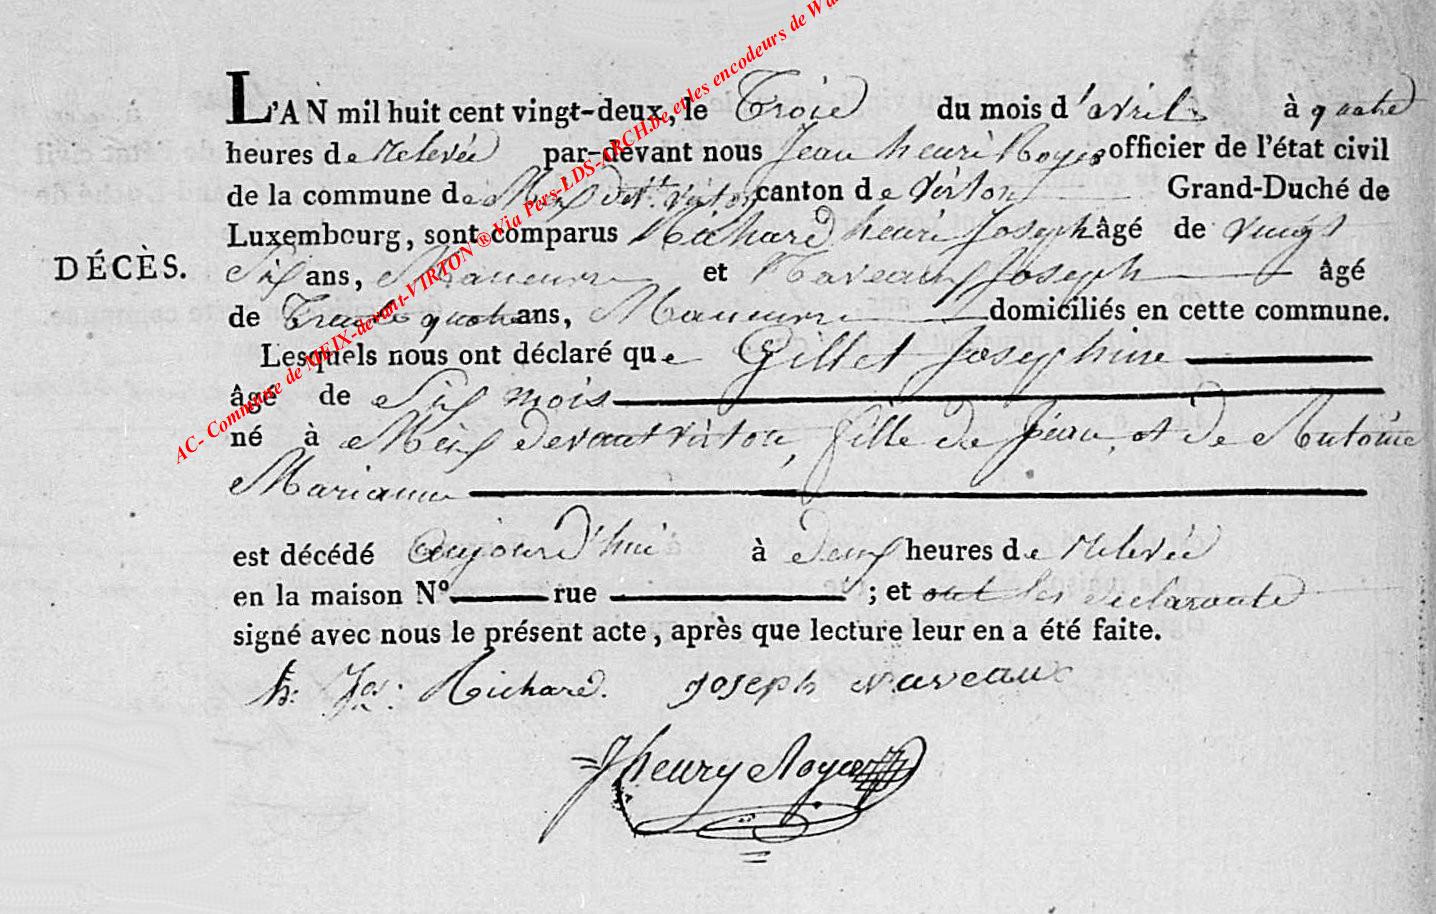 L'AN mil huit cent vingt-deux, le Trois du mois d'avril à quatre
heures de Relevée par-devant nous Jean henri Royer officier de l'état civil
de la commune de Meix dvt. Virton canton de Virton Grand-Duché de
Luxembourg, sont comparus Richard henri Joseph âgé de vingt
DÉCÈS.
Six ans, Manœuvre et Naveaux Joseph âgé
de Trente quatre ans, Manœuvre domiciliés en cette commune.
Lesquels nous ont déclaré que Gillet Josephine
âgé de Six mois
né à Meix devant virton, fille de Jean, et de Antoine
Marianne
est décédé aujourd'hui à deux heures de Relevée
en la maison N° rue ; et ont les déclarants
signé avec nous le présent acte, après que lecture leur en a été faite.
h: Jos: Richard. Joseph Naveaux
Jhenry Royer
AC- Commune de MEIX-devant-VIRTON ® Via Pers-LDS-ARCH.be et les encodeurs de